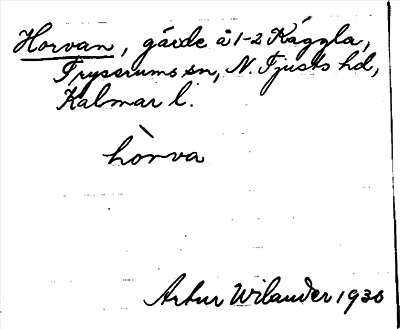 Horvan, gärde å 1-2 Käggla,
Tryserums sn, N. Tjusts hd,
Kalmar l.
hòrva
Artur Wilander 1930